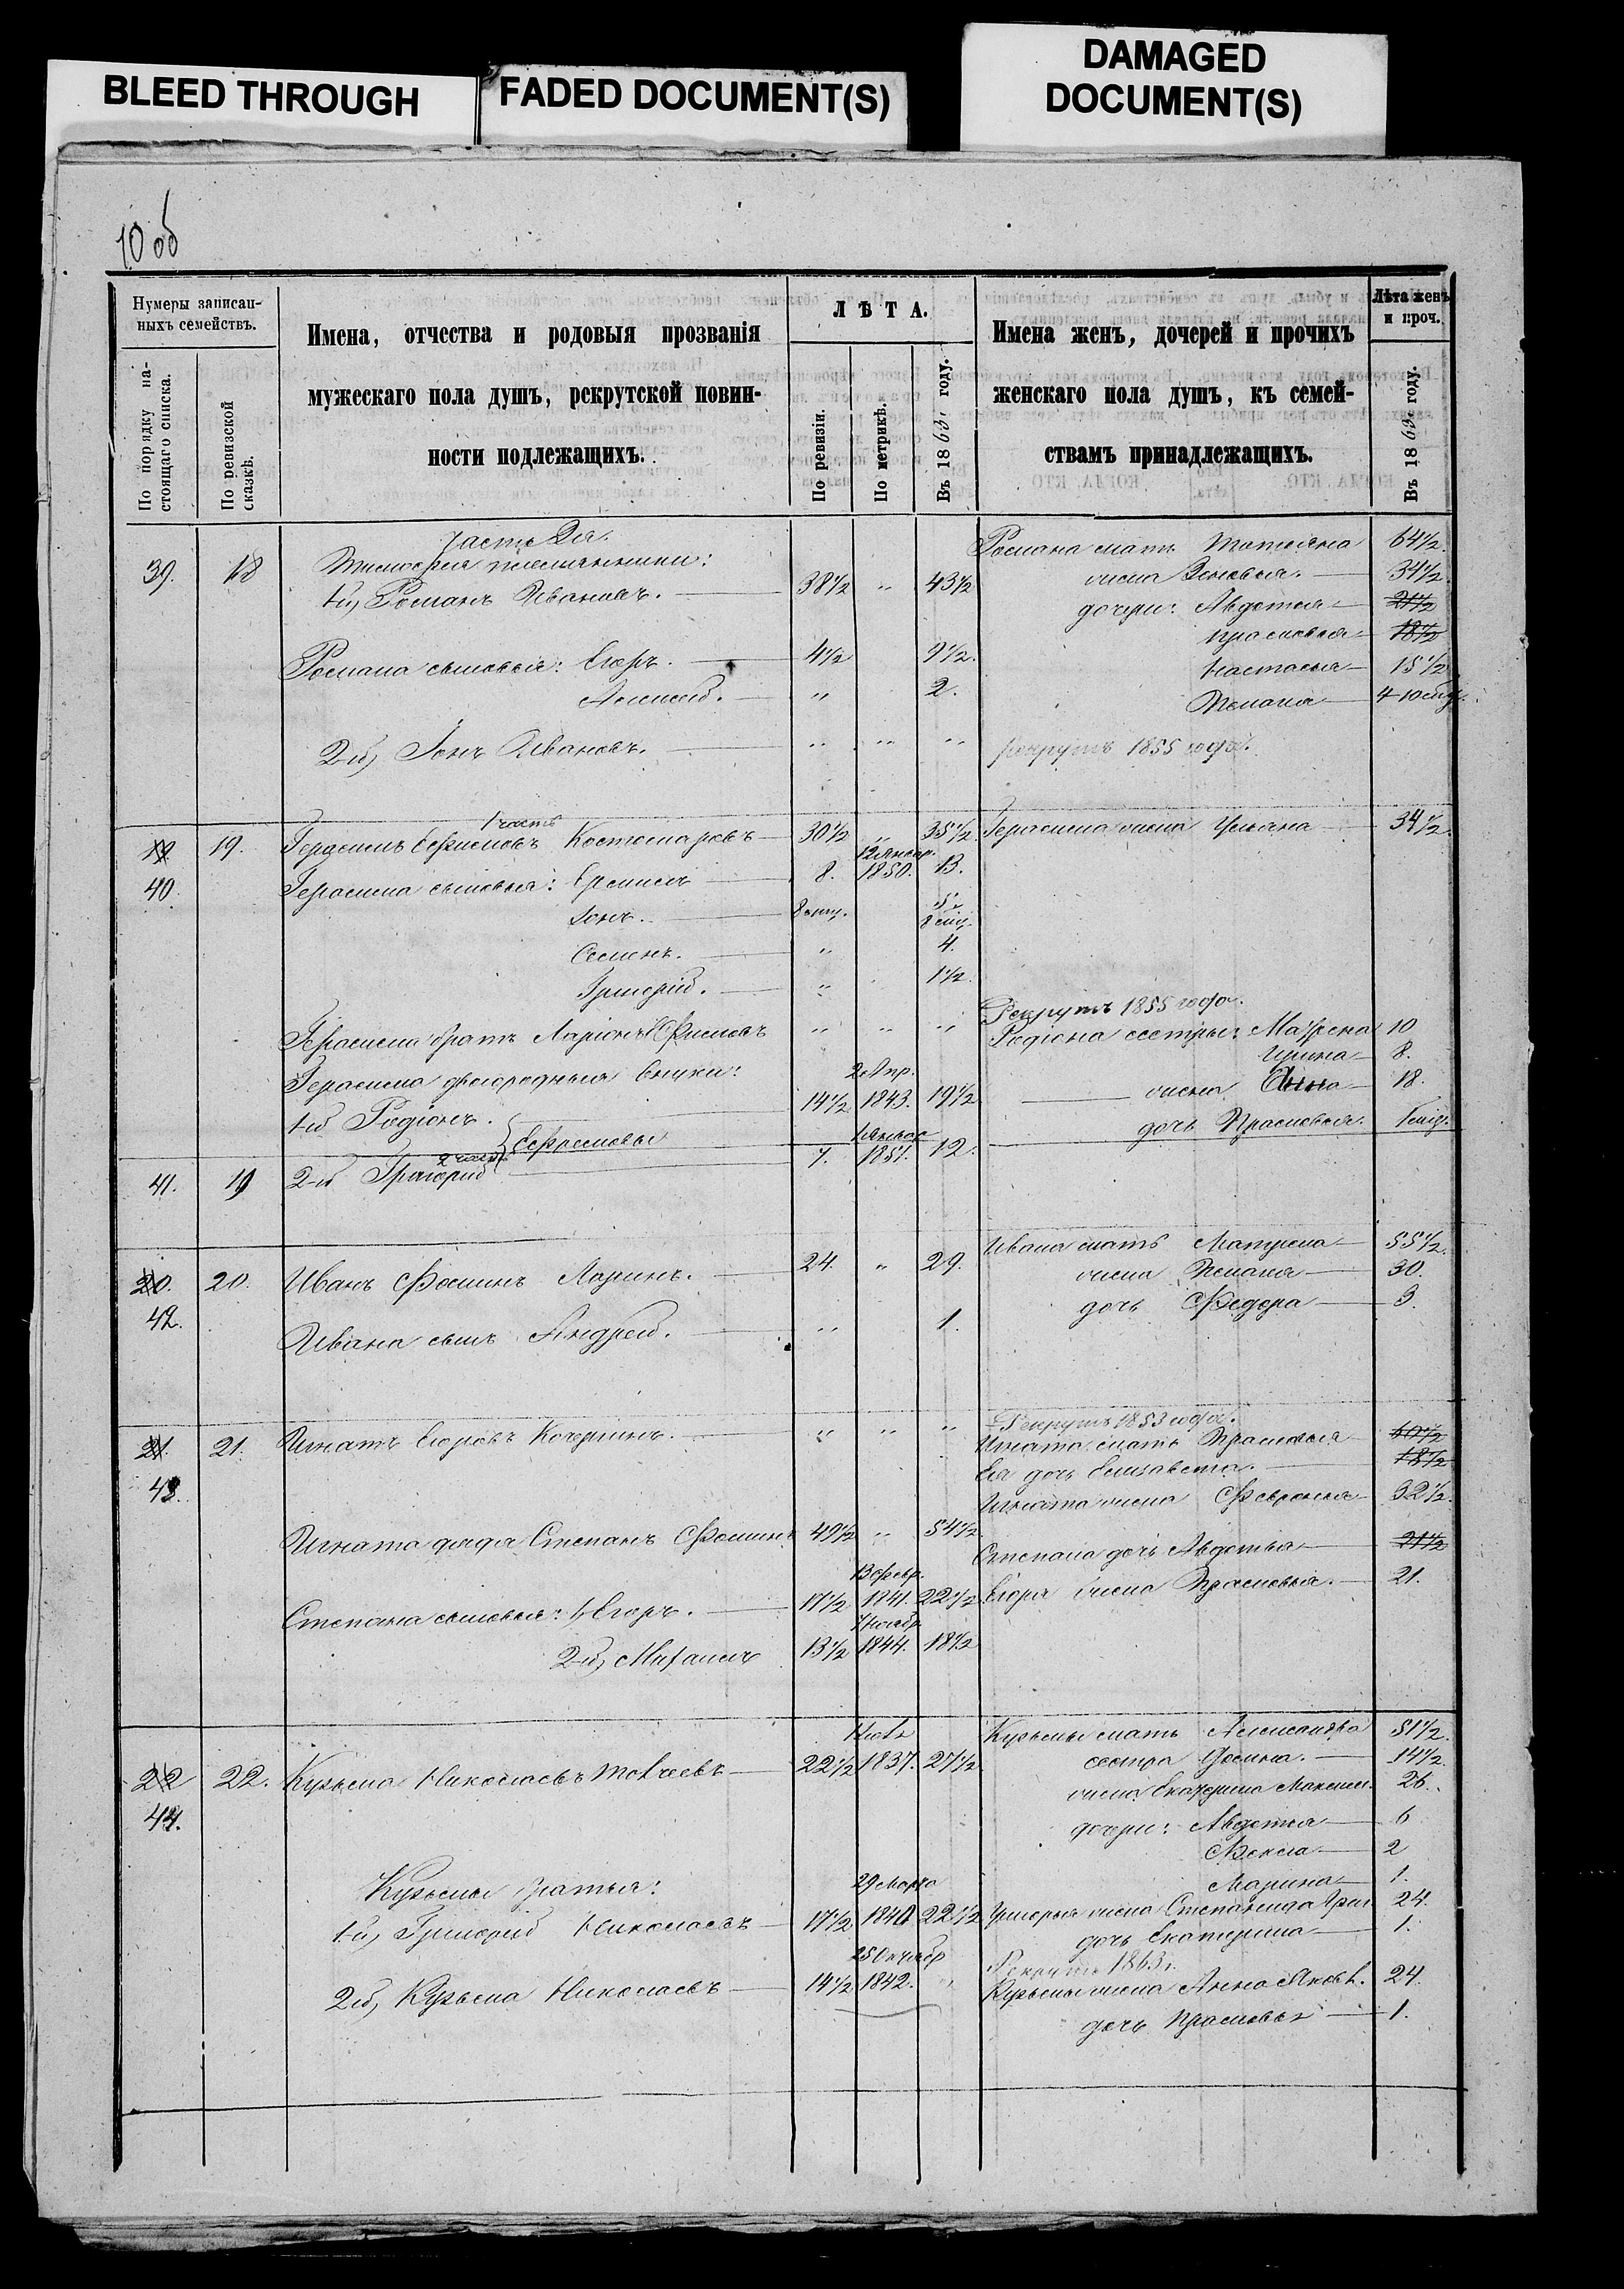 BLEED THROUGH
FADED DOCUMENT(S)
DAMAGED
DOCUMENT(S)
10 об
Нумеры записан-
ныхъ семействъ.
По порядку на-
стоящаго списка.
По ревизской
сказкѣ.
Имена, отчества и родовыя прозванія
мужескаго пола душъ, рекрутской повин-
ности подлежащихъ.
ЛѢТА.
По ревизіи.
По метрикѣ.
Въ 1863 году.
Имена женъ, дочерей и прочихъ
женскаго пола душъ, къ семей-
ствамъ принадлежащихъ.
Лѣта женъ
и проч.
Въ 1863 году.
часть 2я.
39. 18 племянники:
1й, Романъ Ивановъ. 38½ " 43½
Романа мать Татьяна 64½.
жена Зеновья. 34½.
дочери: Авдотья 21½
Прасковья 18½
Романа сыновья: Егоръ. 4½ 9½.
Настасья 15½
Алексей. " 2.
4
2й, Іонъ Ивановъ. " " "
рекрутъ 1855 года.
1 часть
19. 19. Герасимъ Ефимовъ Костомаровъ 30½ " 35½.
Герасима жена Ульяна 34½.
40. Герасима сыновья: 8. 12 Январ. 1850. 13.
Іонъ. 8 мц. 5. 8 мц.
Семенъ. " 4.
Григорій. " 1½.
Рекрутъ 1855 года.
Герасима братъ Ларіонъ Ефимовъ " " "
Родіона сестры: Матрена 10
Ирина 8.
Герасима двоюродныя внуки:
1й Родіонъ. 14½ 2 Апр. 1843. 19½
жена Анна 18.
дочь Прасковья.
Ефремовы
41. 19 2й Григорій 7. 1851. 12.
20. 20. Иванъ Фоминъ Ларинъ. 24. " 29.
Ивана мать Матрена 55½.
жена 30.
дочь Федора 3.
42. Ивана сынъ Андрей. " 1.
Рекрутъ 1853 года.
21. 21. Игнатъ Егоровъ Кочергинъ. " " "
Игната мать Прасковья 60½
Ея дочь Елизавета. 18½
43. Игната жена Февронья 32½.
Игната дядя Степанъ Фоминъ 49½ " 54½.
Степана дочь Авдотья 21½
Степана сыновья: 1, Егоръ. 17½ 13 Февр. 1841. 22½
Егора жена Прасковья. 21.
2й, Михаилъ 13½ 7 Ноябр. 1844. 18½
22 22. Кузьма Николаевъ 22½ 1837. 27½
Кузьмы мать Александра 51½.
сестра 14½.
жена Екатерина Максим. 26.
44. дочери: Авдотья 6
Фекла 2
Марина 1.
Кузьмы братья:
1й, Григорій Николаевъ 17½ 29 Марта 1840 22½
Григорья жена Степанида 24.
дочь Екатерина 1.
Рекрутъ 1863 г.
2й, Кузьма Николаевъ 14½ 25 Октябр 1842. "
Кузьмы жена Анна Яковл. 24.
дочь Прасковья 1.